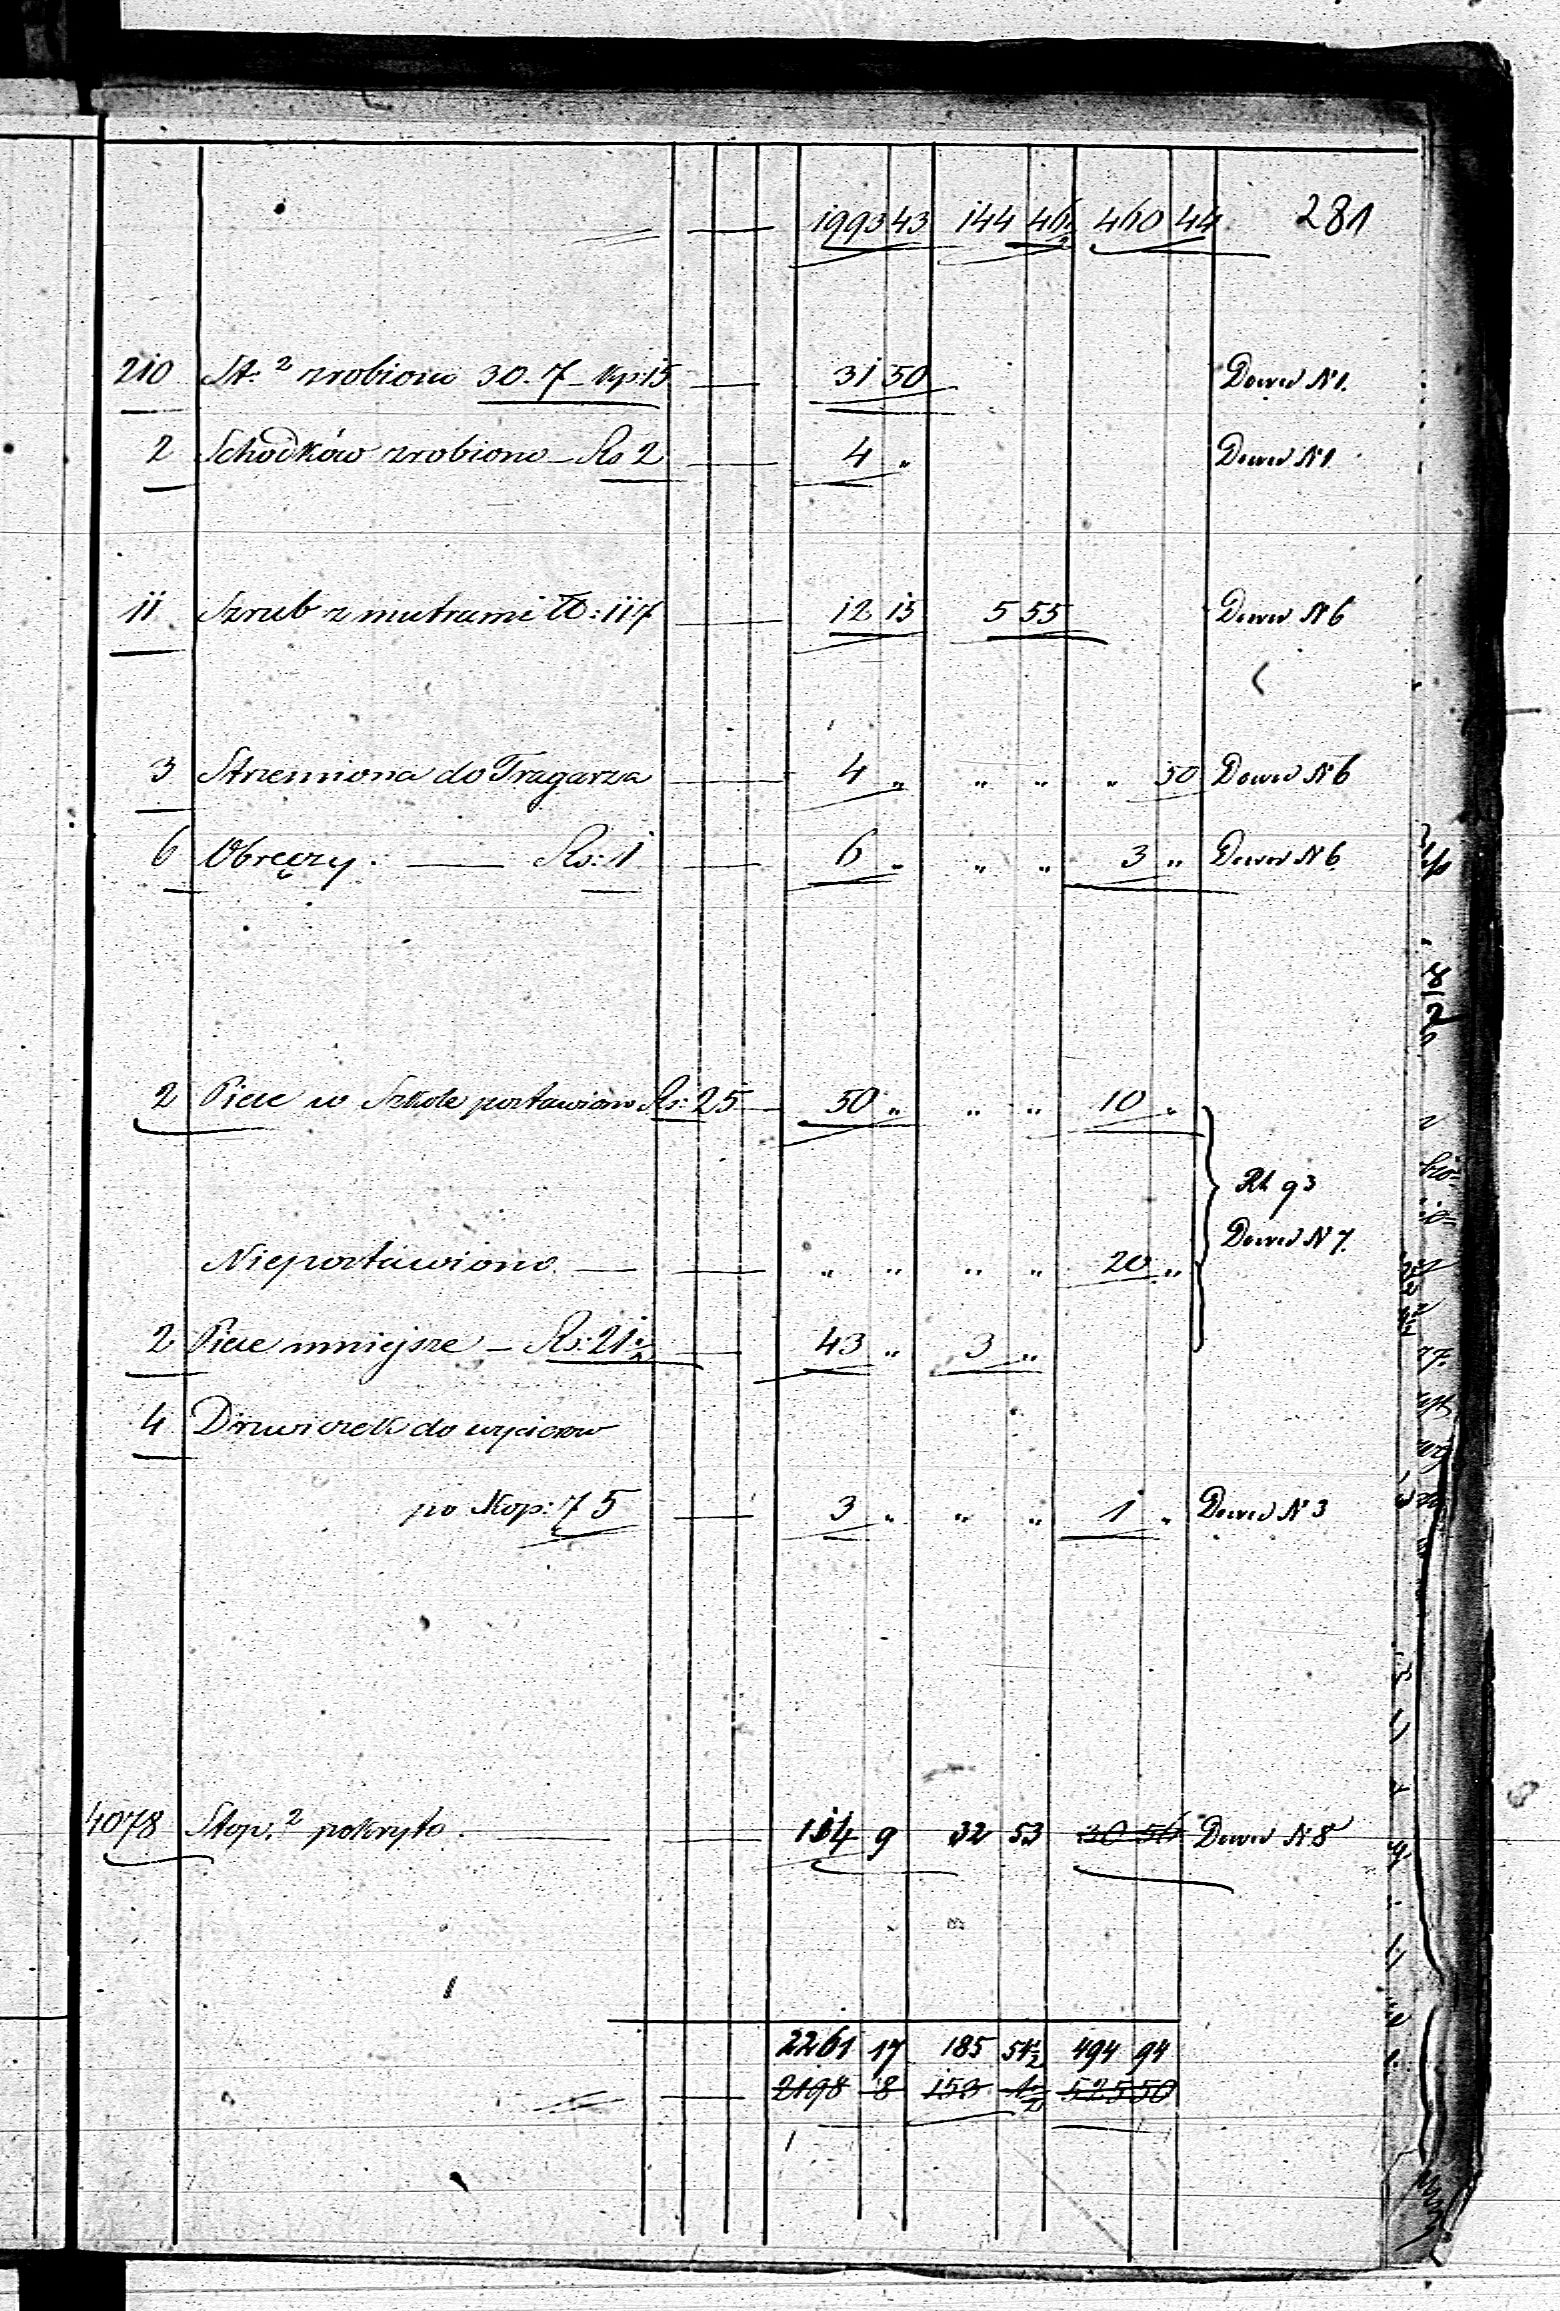 1993 43 144 46½ 460 44 281
210 St:² zrobiono 30.7 – kp: 15 — 31 50 Dowód N 1.
2 Schodków zrobiono – Rs 2 — 4 „ Dowód N 1
11 Szrub z mutrami ℔: 117 — 12 15 5 55 Dowód N 6
3 Strzemiona do Tragarza — 4 „ „ „ „ 50 Dowód N 6
6 Obręczy. — Rs: 1 — 6 „ „ „ 3 „ Dowód N 6
2 Piece w Szkole postawiono Rs: 25 — 50 „ „ „ 10 „
Rb 93
Dowód N 7.
Niepostawiono — — „ „ „ „ 20 „
2 Piece mniejsze – Rs: 21½ — 43 „ 3 „
4 Drzwiczek do wyciorow
po Kop: 75 — 3 „ „ „ 1 „ Dowód N 3
4078 Stop.² pokryto. — — 114 9 32 53 30 56 Dowód N 8
2261 17 185 54½ 494 94
— 2198 8 153 1½ 525 50